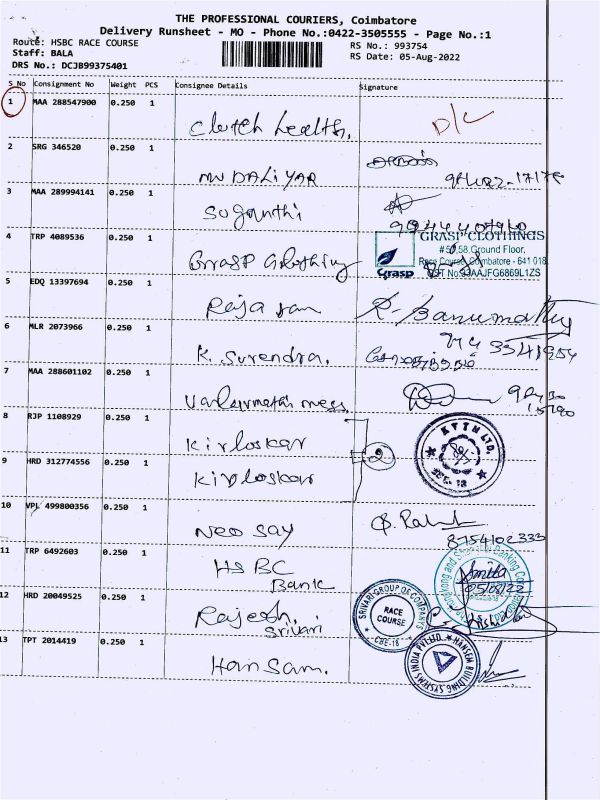 THE PROFESSIONAL COURIERS, Coimbatore
Delivery Runsheet - MO - Phone No.:0422-3505555 - Page No.:1
Route: HSBC RACE COURSE
RS No.: 993754
Staff: BALA
RS Date: 05-Aug-2022
DRS No.: DCJB99375401
S No Consignment No Weight PCS Consignee Details Signature
1 MAA 288547900 0.250 1 Clutch health. D/C
2 SRG 346520 0.250 1 MUDALIYAR
3 MAA 289994141 0.250 1 Suganthi
4 TRP 4089536 0.250 1 Grasp Clothing
GRASP CLOTHINGS
# 57,58, Ground Floor,
Race Course, Coimbatore - 641 018
GST No:33AAJFG6869L1ZS
Grasp
5 EDQ 13397694 0.250 1 Raja ram R. Banumathy
6 MLR 2073966 0.250 1 K. Surendra.
7 MAA 288601102 0.250 1 mess
8 RJP 1108929 0.250 1 Kirloskar
9 HRD 312774556 0.250 1 Kirloskar
2
KTTM LTD.
10 VPL 499800356 0.250 1 Neo say
8754102333
11 TRP 6492603 0.250 1 HSBC
Bank
Smitha
05/08/22
12 HRD 20049525 0.250 1 Rajesh,
Srivari
SRIVARI GROUP OF COMPANIES
RACE
COURSE
CBE-18
13 TPT 2014419 0.250 1 Hansam.
HANSEM BUILDING SYSTEMS INDIA PVT LTD.